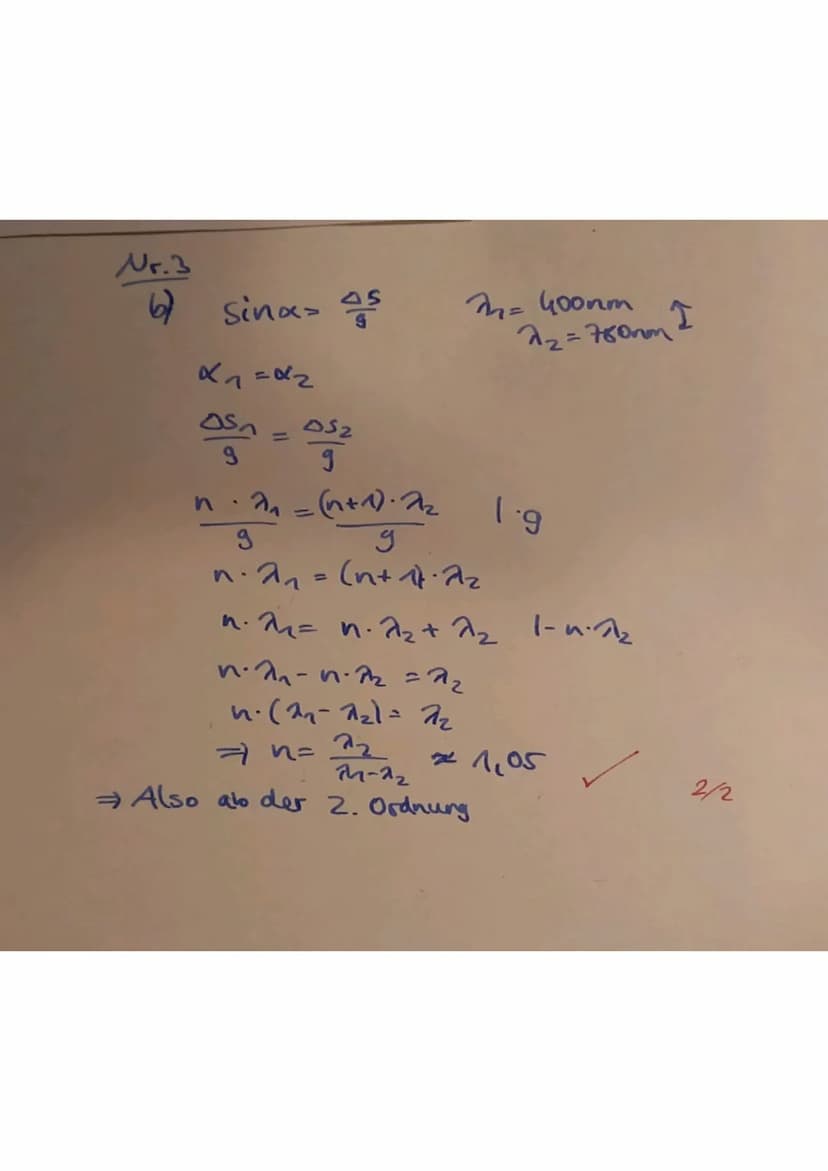 Nr.3
b) sinα = Δs/g λ₁ = 400nm
λ₂ = 780nm
α₁ = α₂
Δs₁/g = Δs₂/g
n · λ₁/g = (n+1) · λ₂/g | ·g
n · λ₁ = (n+1) · λ₂
n · λ₁ = n · λ₂ + λ₂ | - n · λ₂
n · λ₁ - n · λ₂ = λ₂
n · (λ₁ - λ₂) = λ₂
⇒ n = λ₂/λ₁-λ₂ ≈ 1,05 ✓
2/2
⇒ Also ab der 2. Ordnung